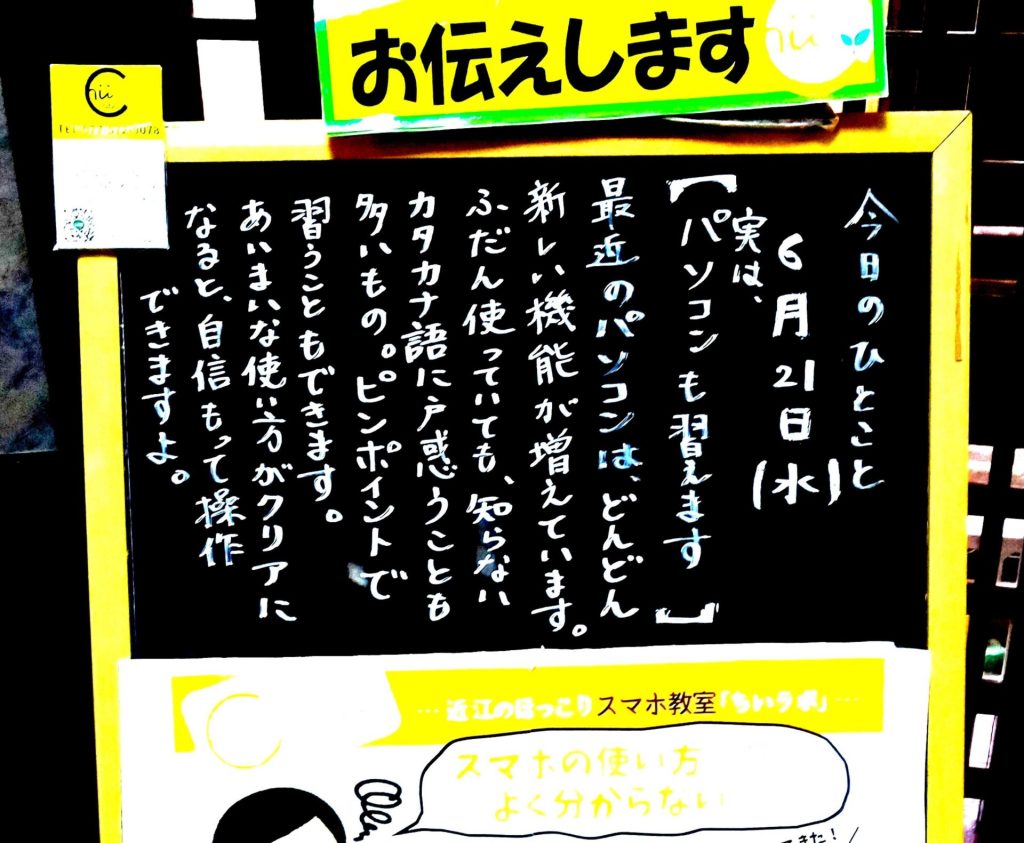 お伝えします
hii
hii
今日のひとこと
6月21日(水)
実は、
【パソコンも習えます】
最近のパソコンは、どんどん
新しい機能が増えています。
ふだん使っていても、知らない
カタカナ語に戸惑うことも
多いもの。ピンポイントで
習うこともできます。
あいまいな使い方がクリアに
なると、自信もって操作
できますよ。
…近江のほっこりスマホ教室「ちいラボ」…
スマホの使い方
よく分からない
できた!